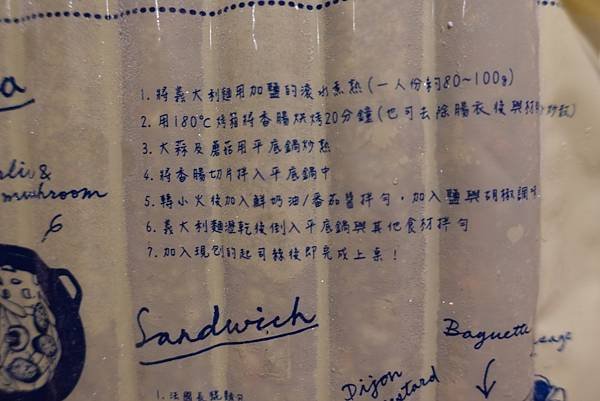 a
1. 將義大利麵用加鹽的滾水煮熟(一人份約80~100g)
2. 用180°C烤箱將香腸烘烤20分鐘(也可去除腸衣後與蒜 炒散)
3. 大蒜及蘑菇用平底鍋炒熟
4. 將香腸切片拌入平底鍋中
5. 轉小火後加入鮮奶油/番茄醬拌勻,加入鹽與胡椒調味
6. 義大利麵瀝乾後倒入平底鍋與其他食材拌勻
7. 加入現刨的起司絲後即完成上桌!
&
mushroom
Sandwich
Baguette
Dijon
1. 法國長棍麵包